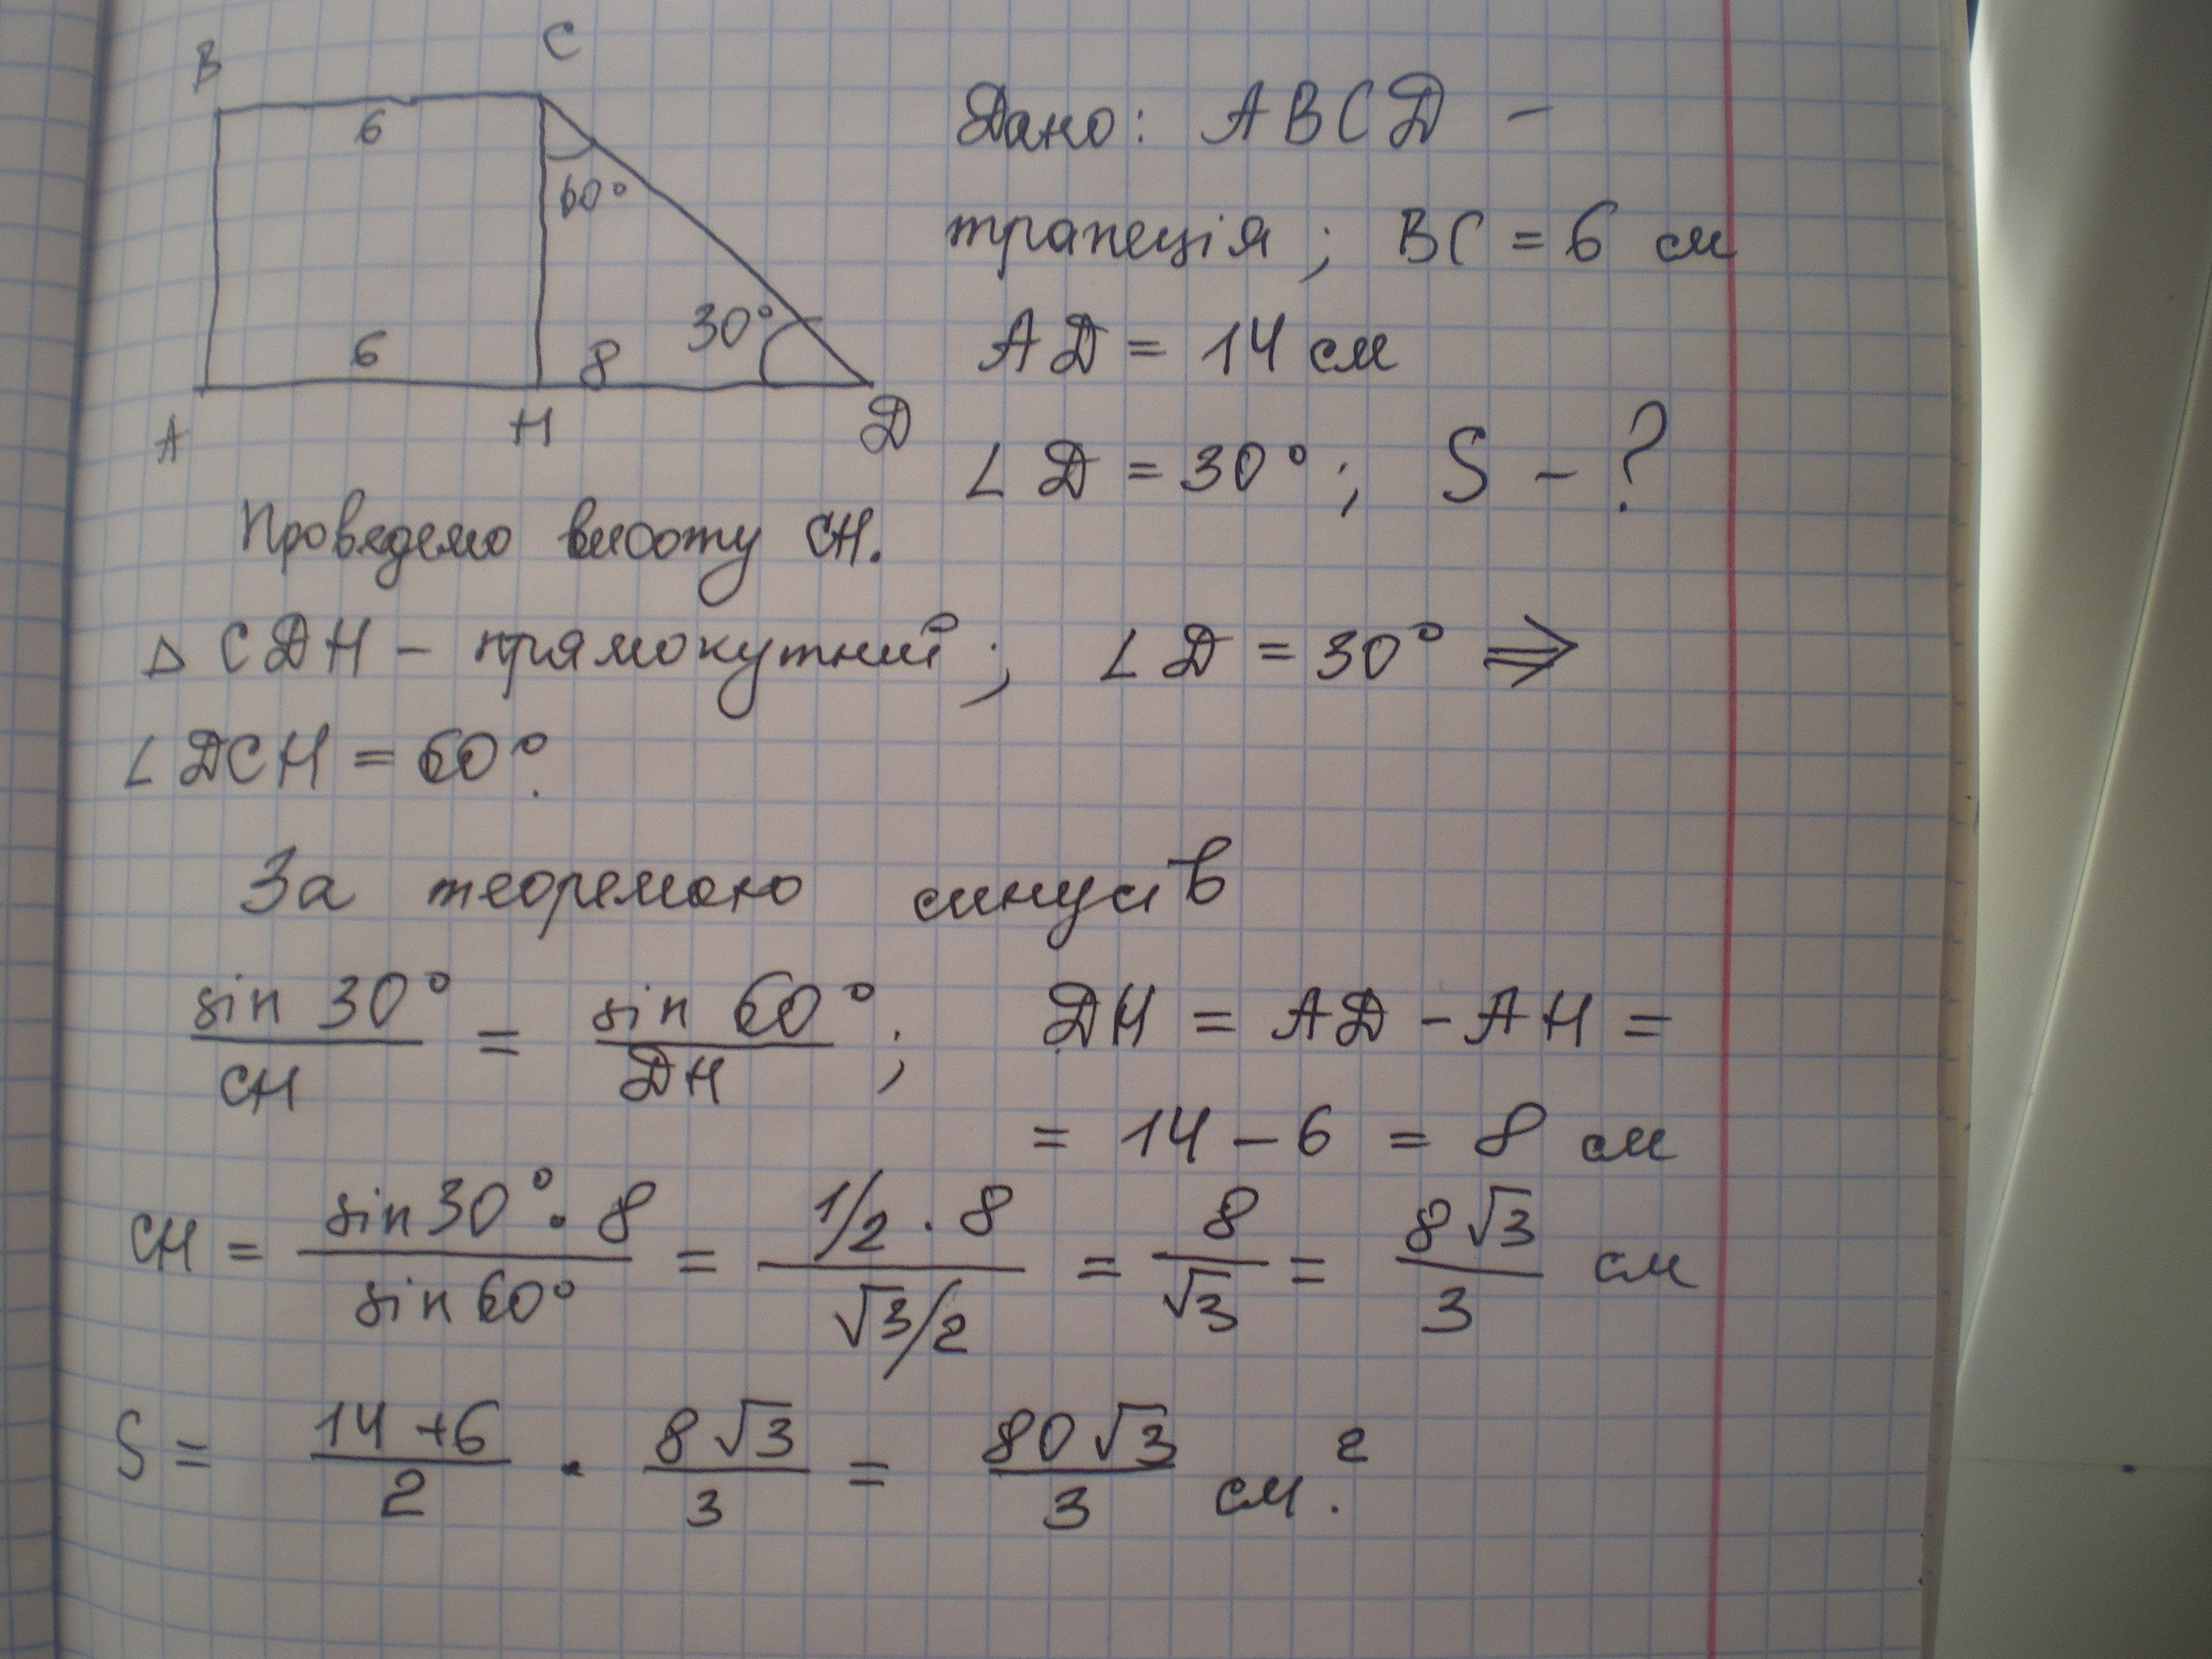 B
C
6
60°
30°
6
8
A
H
D
Дано: ABCD –
трапеція; BC = 6 см
AD = 14 см
∠D = 30°; S – ?
Проведемо висоту CH.
△CDH – прямокутний; ∠D = 30° ⇒
∠DCH = 60°.
За теоремою синусів
sin 30° / CH = sin 60° / DH; DH = AD – AH =
= 14 – 6 = 8 см
CH = sin 30° · 8 / sin 60° = 1/2 · 8 / √3/2 = 8/√3 = 8√3/3 см
S = 14 + 6 / 2 · 8√3/3 = 80√3/3 см.²